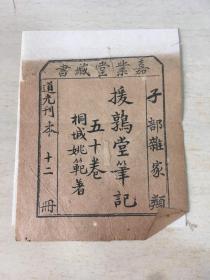 嘉業堂藏書
子部雜家類
援鶉堂筆記
五十卷
桐城姚範著
道光刊本 十二冊